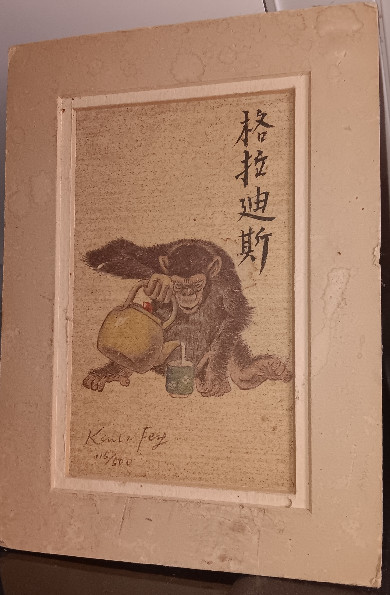 格拉迪斯
Kwan Fey
116/500